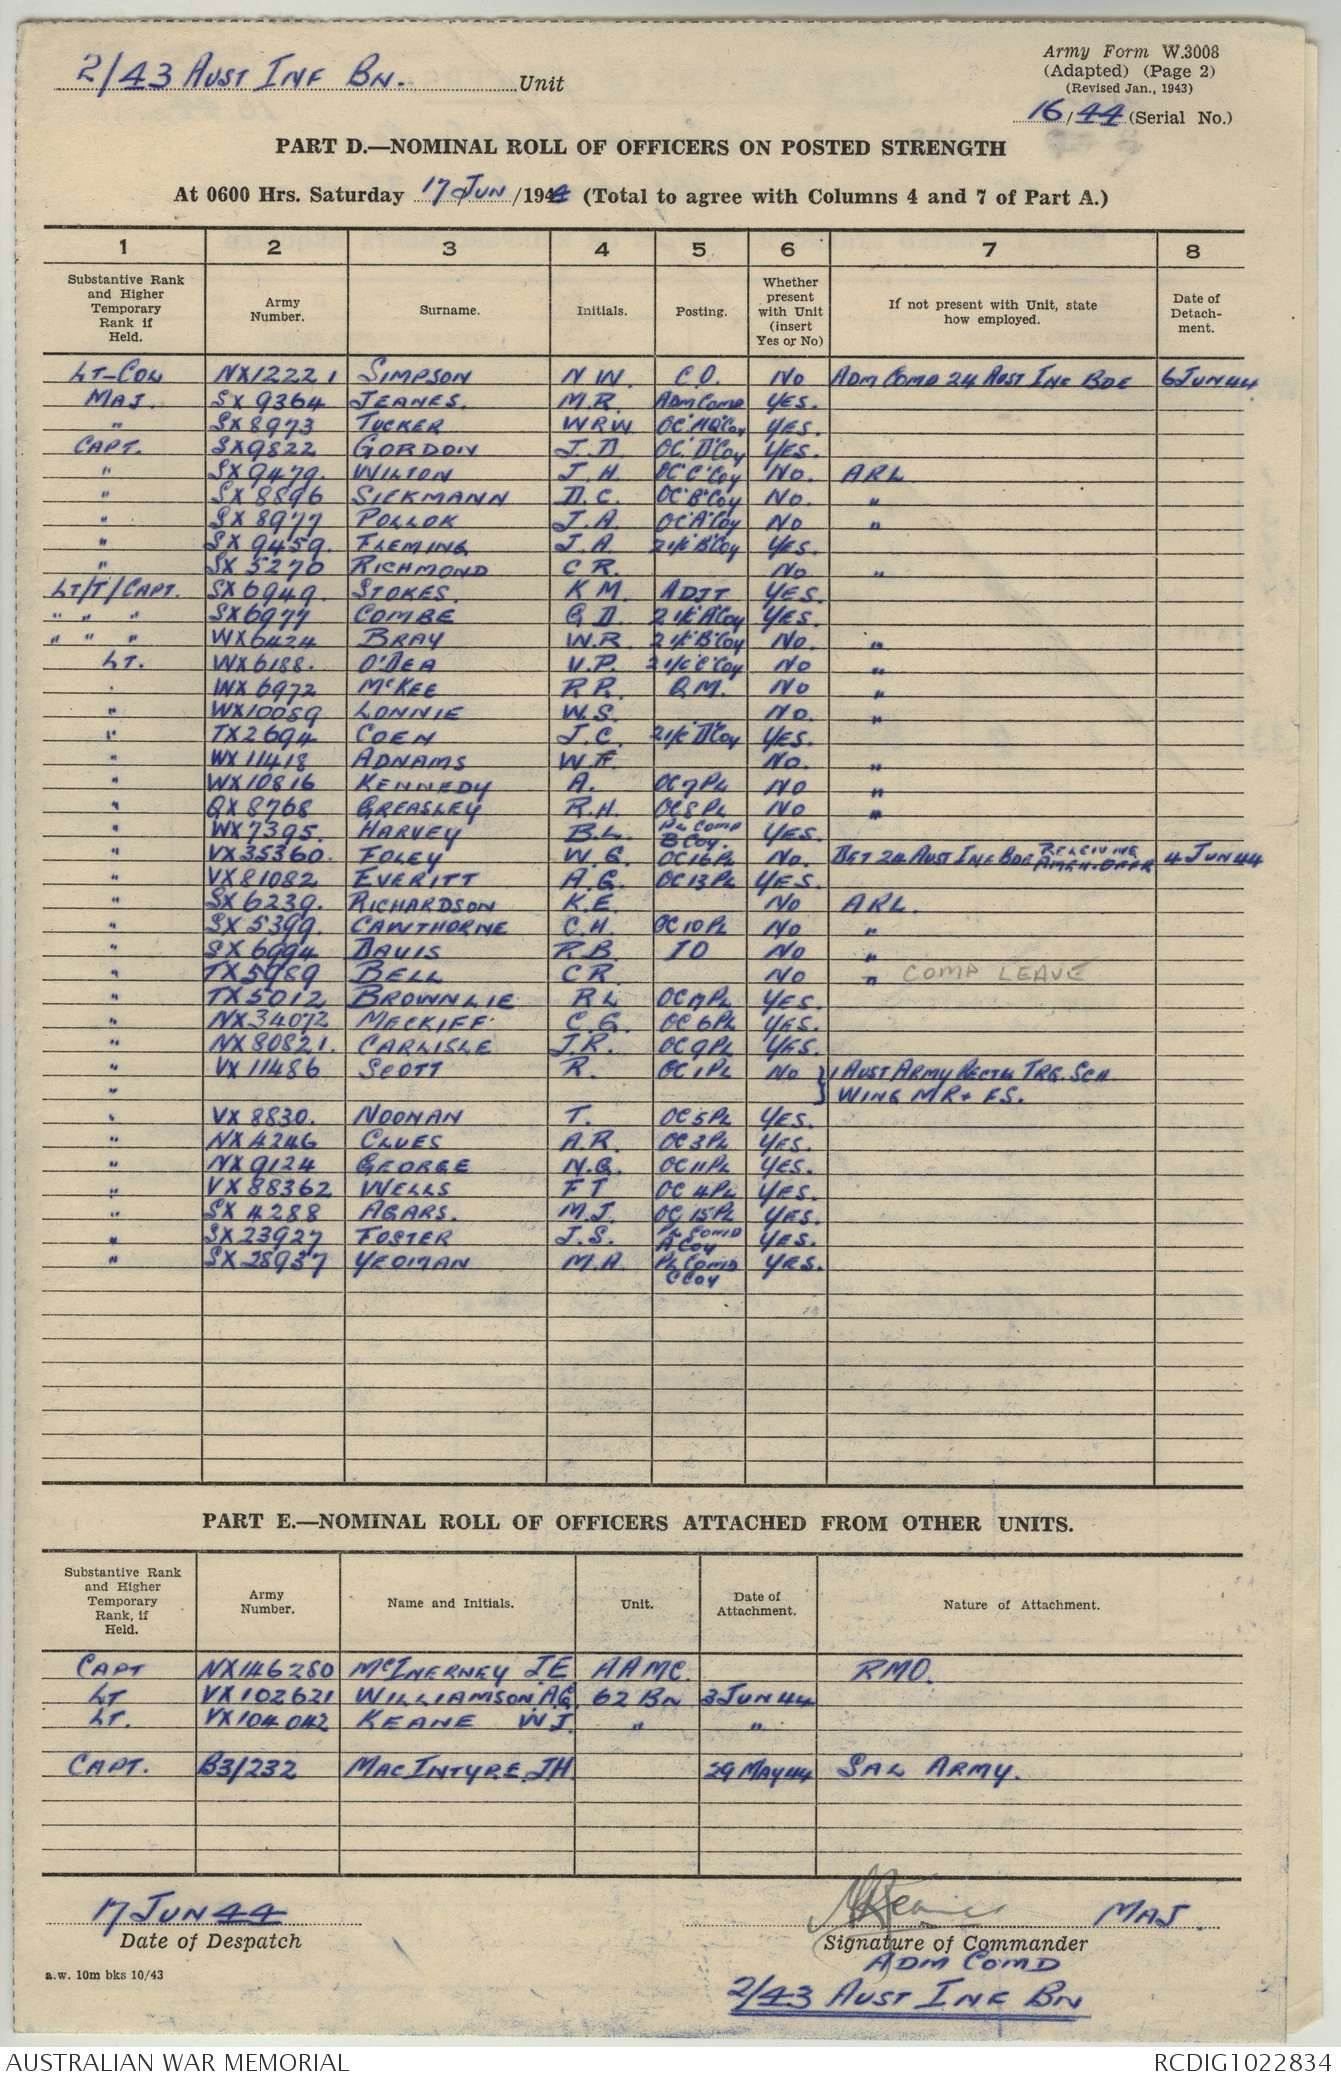 2/43 AUST INF BN. Unit
Army Form W.3008
(Adapted) (Page 2)
(Revised Jan., 1943)
16/44 (Serial No.)
PART D.—NOMINAL ROLL OF OFFICERS ON POSTED STRENGTH
At 0600 Hrs. Saturday 17 JUN /1944 (Total to agree with Columns 4 and 7 of Part A.)
1 2 3 4 5 6 7 8
Substantive Rank and Higher Temporary Rank if Held. Army Number. Surname. Initials. Posting. Whether present with Unit (insert Yes or No) If not present with Unit, state how employed. Date of Detachment.
LT-COL NX12221 SIMPSON N W. C.O. NO ADM COMD 24 AUST INF BDE 6 JUN 44
MAJ. SX 9364 JEANES. M.R. ADM COMD YES.
" SX 8973 TUCKER W R W OC 'HQ' COY YES.
CAPT. SX9822 GORDON J. D. OC 'D' COY YES.
" SX 9479. WILTON J. H. OC 'C' COY NO. ARL.
" SX 8896 SIEKMANN D. C. OC 'B' COY NO. "
" SX 8977 POLLOK J. A. OC 'A' COY NO "
" SX 9459. FLEMING J. A. 2 I/C 'B' COY YES.
" SX 5270 RICHMOND C R. NO "
LT/T/CAPT. SX 6949. STOKES. K M. ADJT YES.
" " " SX6977 COMBE G D. 2 I/C 'A' COY YES.
" " " WX6424 BRAY W.R 2 I/C 'B' COY NO. "
LT. WX6188. O'DEA V.P. 2 I/C 'C' COY NO "
" WX 6972 McKEE R.R. Q.M. NO "
" WX10059 LONNIE W.S. NO. "
" TX2694 COEN J.C. 2 I/C 'D' COY YES.
" WX 11418 ADNAMS W.F. NO. "
" WX10816 KENNEDY A. OC 7 PL NO "
" QX 8768 GREASLEY R.H. OC 8 PL NO "
" WX 7395. HARVEY B.L. PL COMD B COY. YES.
" VX35360. FOLEY W.G. OC 16 PL NO. DET 24 AUST INF BDE RECEIVING AMEN. OFFR 4 JUN 44
" VX81082 EVERITT A.G. OC 13 PL YES.
" SX 6239. RICHARDSON K.E. NO ARL.
" SX 5399. CAWTHORNE C.H. OC 10 PL NO "
" SX 6994 DAVIS R.B. IO NO "
" TX5989 BELL C R. NO " COMP LEAVE
" TX5012 BROWNLIE R L OC 17 PL YES.
" NX34072 MECKIFF C.G. OC 6 PL YES.
" NX80821. CARLISLE J.R. OC 9 PL YES.
" VX 11486 SCOTT R. OC 1 PL NO 1 AUST ARMY TRG. SCH
" WING MR + FS.
" VX 8830. NOONAN T. OC 5 PL YES.
" NX 4246 CLUES A.R. OC 3 PL YES.
" NX9124 GEORGE N.G. OC 11 PL YES.
" VX88362 WELLS F T OC 4 PL YES.
" SX 4288 AGARS. M.J. OC 15 PL YES.
" SX23927 FOSTER J.S. PL COMD A COY YES.
" SX28937 YEOMAN M.A. PL COMD C COY YES.
PART E.—NOMINAL ROLL OF OFFICERS ATTACHED FROM OTHER UNITS.
Substantive Rank and Higher Temporary Rank, if Held. Army Number. Name and Initials. Unit. Date of Attachment. Nature of Attachment.
CAPT NX146280 McINERNEY J.E AAMC. RMO.
LT VX102621 WILLIAMSON. A.G. 62 BN 3 JUN 44
LT. VX104042 KEANE W J. " "
CAPT. B3/232 MACINTYRE. JH 29 MAY 44 SAL ARMY.
17 JUN 44 MAJ.
Date of Despatch
Signature of Commander
ADM COMD
a.w. 10m bks 10/43
2/43 AUST INF BN
AUSTRALIAN WAR MEMORIAL RCDIG1022834